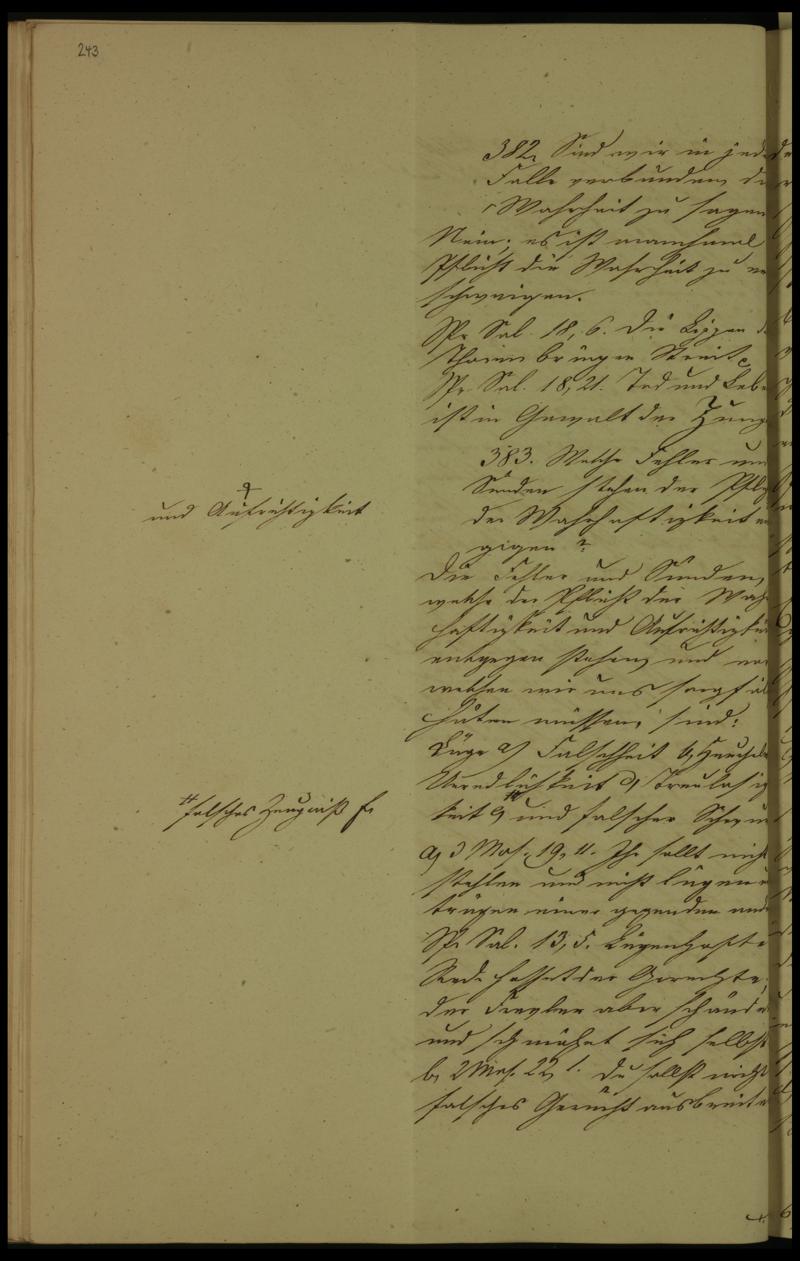 243
382, Sind wir in jede
Falle verbunden, di
Wahrheit zu sagen
Nein; es ist manchmal
Pflicht die Wahrheit zu ve
schweigen.
Spr. Sal. 18, 6. Die Lippen d
Thoren bringen Streit
Spr. Sal. 18, 21. Tod und Leb
ist in Gewalt der Zung
383. Welche Fehler un
Sünden stehen der Pfli
der Wahrhaftigkeit en
gegen?
und Aufrichtigkeit
Die Fehler und Sünden,
welche der Pflicht der Wah
haftigkeit und Aufrichtigkei
entgegen stehen, und vor
welchen wir uns sorgfäl
hüten müssen, sind:
Lüge a) Falschheit b, Heuchele
Unredlichkeit d, Treulosig
keit e, und falscher Schwu
falsches Zeugniß f,
a, 3 Mos. 19, 11. Ihr sollt nich
stehlen und nicht lügen
trügen einer gegen den and
Spr. Sal. 13, 5. Lügenhafte
Rede hasset der Gerechte,
der Frevler aber schände
und schmähet sich selbst
b, 2 Mos. 22, 1. Du sollst nicht
falsches Gerücht ausbreite